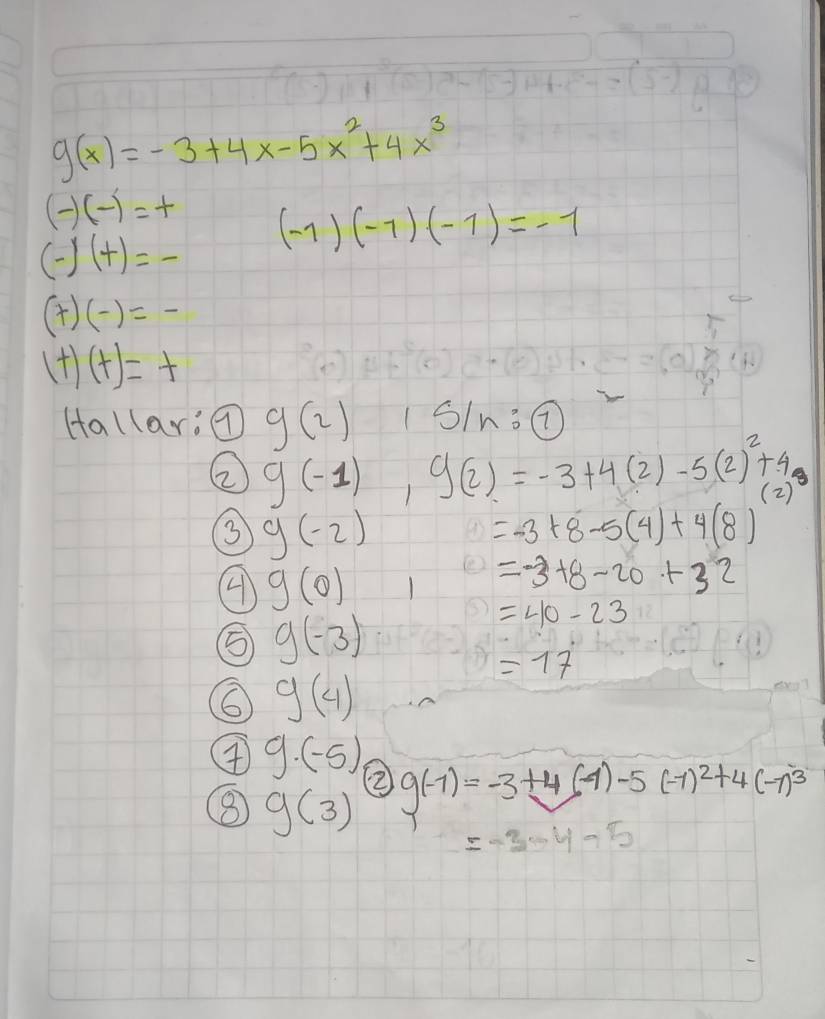 g(x) = - 3 + 4x - 5x² + 4x³
(-)(-) = +
(-1)(-1)(-1) = -1
(-)(+) = -
(+)(-) = -
(+)(+) = +
Hallar: ① g(2)
② g(-1)
③ g(-2)
④ g(0)
⑤ g(-3)
⑥ g(4)
⑦ g.(-5)
⑧ g(3)
S/n: ①
g(2) = -3 + 4(2) - 5(2)² + 4(2)³
= -3 + 8 - 5(4) + 4(8)
= -3 + 8 - 20 + 32
= 40 - 23
= 17
② g(-1) = -3 + 4(-1) - 5(-1)² + 4(-1)³
= -3 - 4 - 5